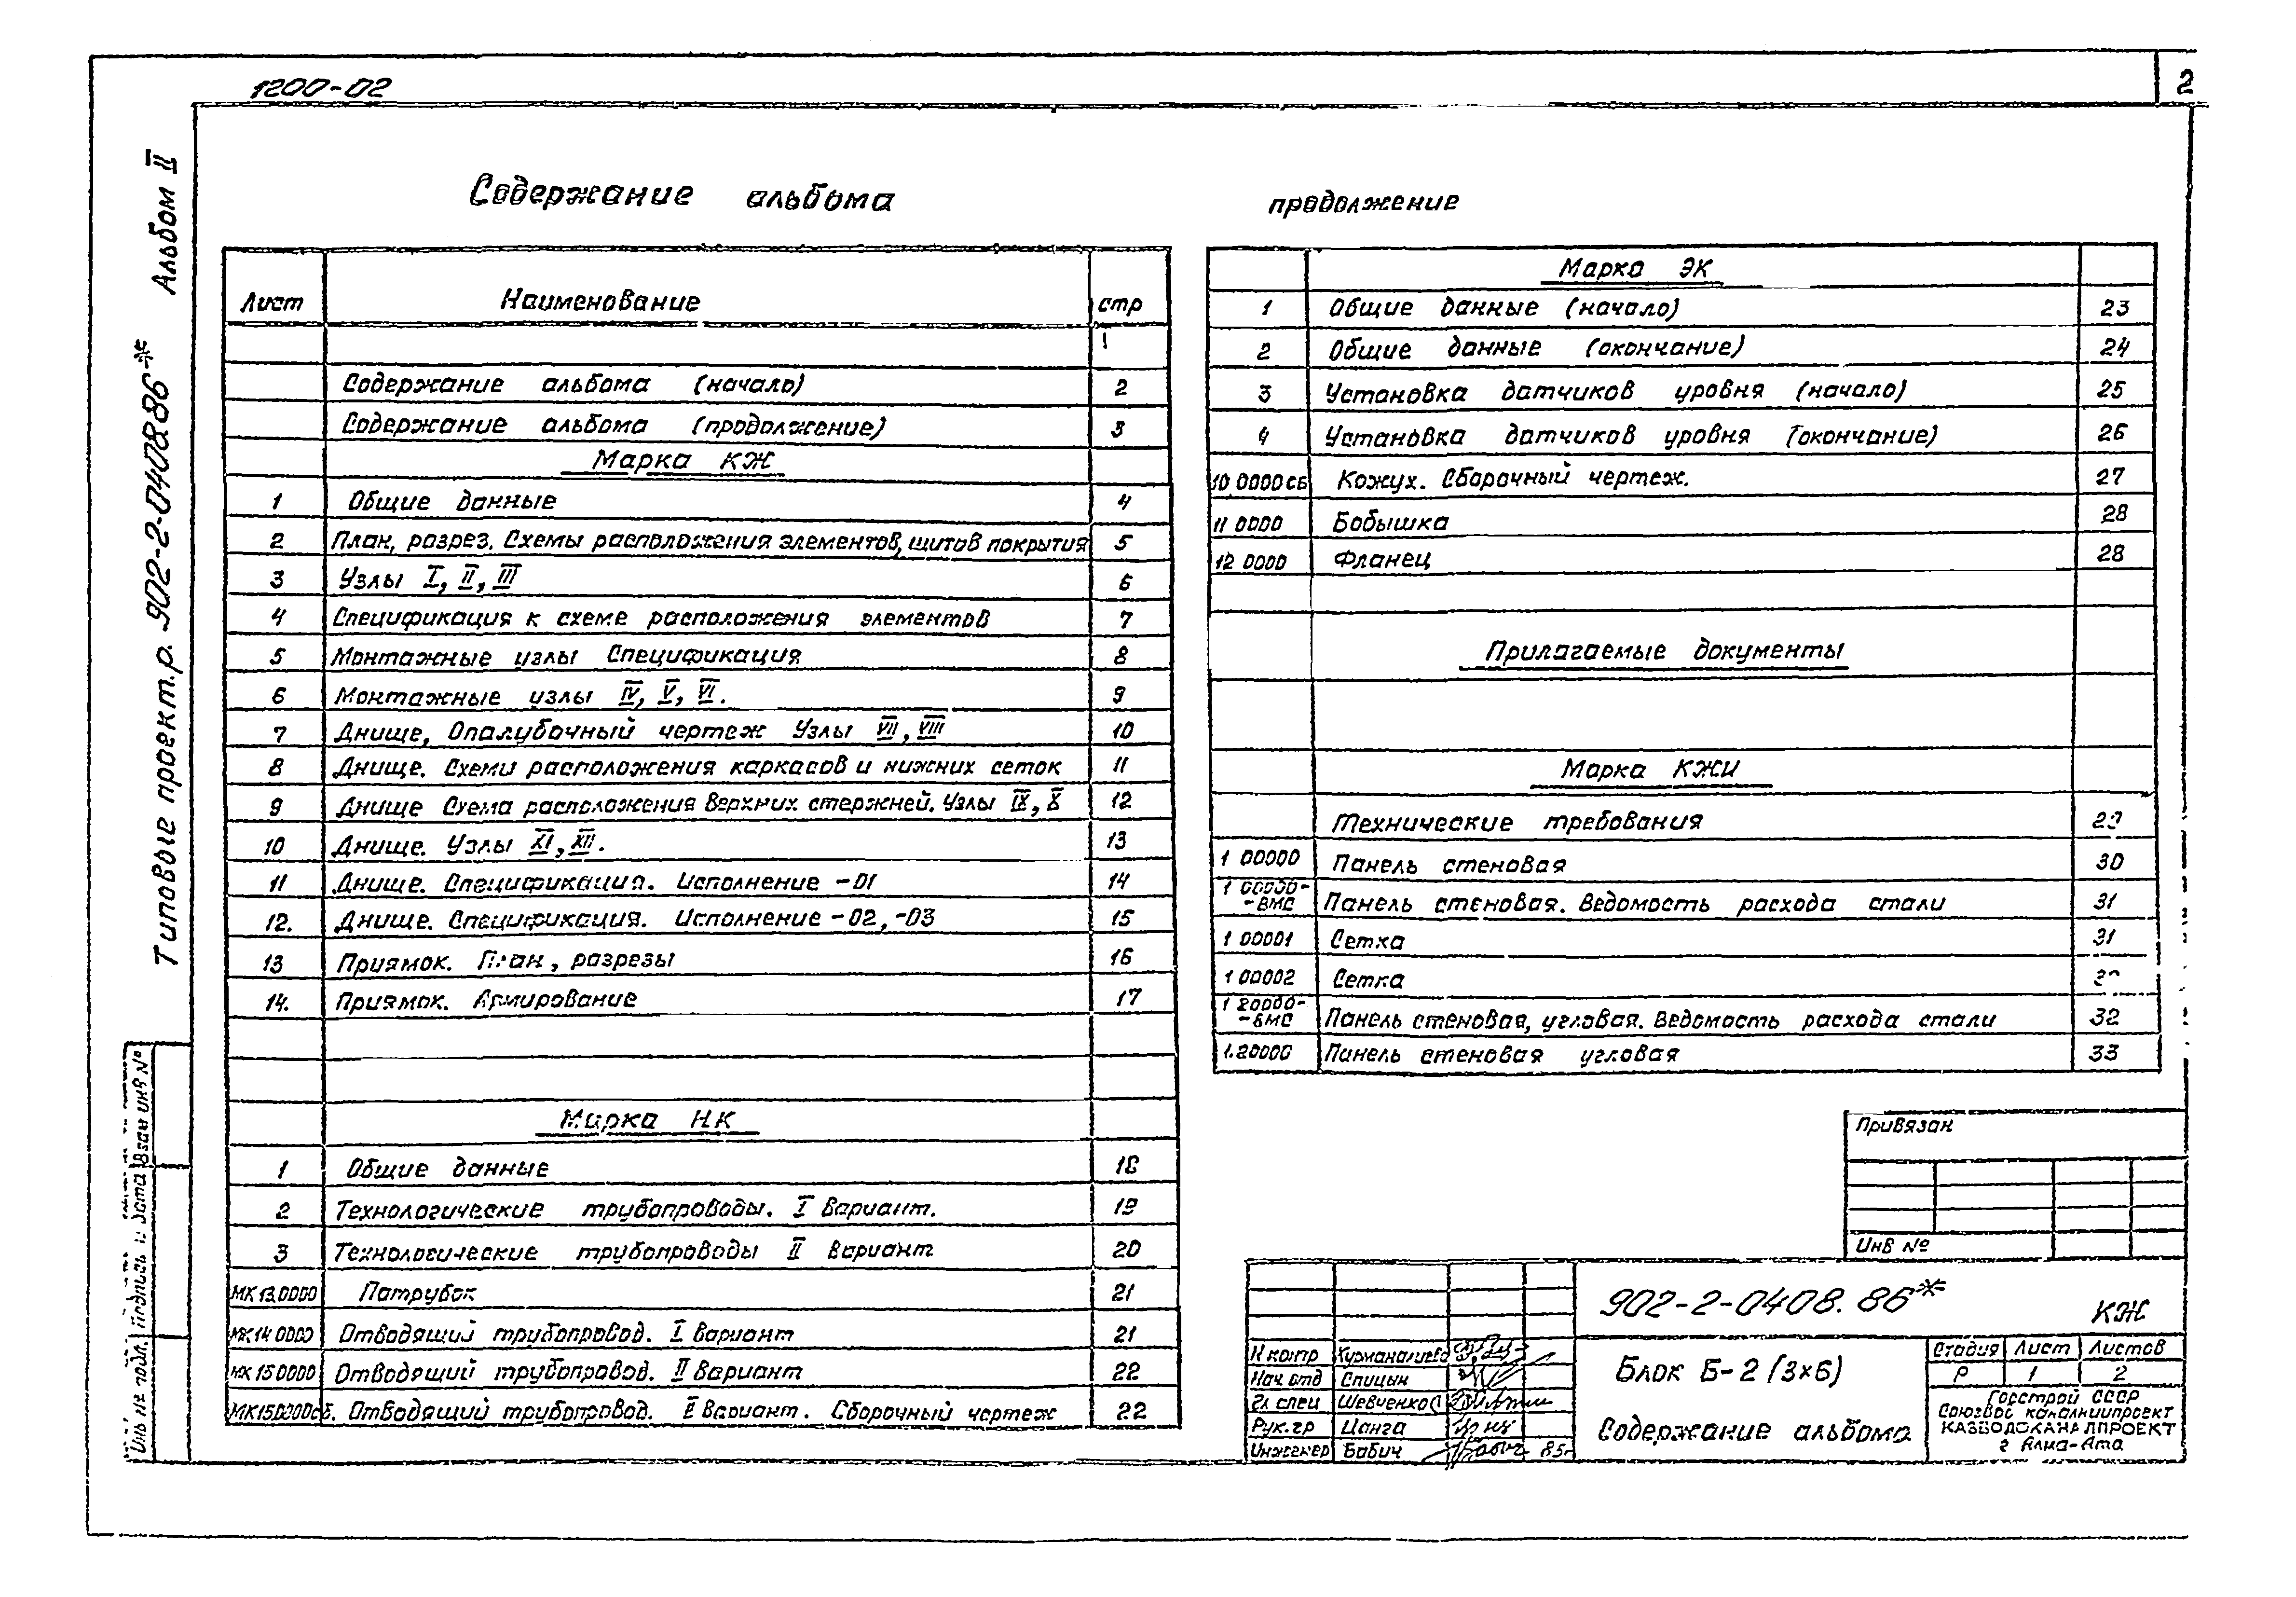 1200-02
2
Типовые проект.р. 902-2-0408.86* Альбом II
Содержание альбома
Лист Наименование стр
1
Содержание альбома (начало) 2
Содержание альбома (продолжение) 3
Марка КЖ
1 Общие данные 4
2 План, разрез. Схемы расположения элементов, щитов покрытия 5
3 Узлы I, II, III 6
4 Спецификация к схеме расположения элементов 7
5 Монтажные узлы Спецификация 8
6 Монтажные узлы IV, V, VI. 9
7 Днище, Опалубочный чертеж Узлы VII, VIII 10
8 Днище. Схемы расположения каркасов и нижних сеток 11
9 Днище Схема расположения верхних стержней. Узлы IX, X 12
10 Днище. Узлы XI, XII. 13
11 Днище. Спецификация. Исполнение -01 14
12. Днище. Спецификация. Исполнение -02, -03 15
13 Приямок. План, разрезы 16
14. Приямок. Армирование 17
Марка НК
1 Общие данные 18
2 Технологические трубопроводы. I вариант. 19
3 Технологические трубопроводы II вариант 20
МК13.0000 Патрубок 21
МК14 0000 Отводящий трубопровод. I вариант 21
МК15 0000 Отводящий трубопровод. II вариант 22
МК15.0000сб. Отводящий трубопровод. II вариант. Сборочный чертеж 22
продолжение
Марка ЭК
1 Общие данные (начало) 23
2 Общие данные (окончание) 24
3 Установка датчиков уровня (начало) 25
4 Установка датчиков уровня (окончание) 26
10 0000 СБ Кожух. Сборочный чертеж. 27
11 0000 Бобышка 28
12 0000 Фланец 28
Прилагаемые документы
Марка КЖИ
Технические требования 29
1 00000 Панель стеновая 30
1 00000-
-ВМС Панель стеновая. Ведомость расхода стали 31
1 00001 Сетка 31
1 00002 Сетка
1 20000-
-ВМС Панель стеновая, угловая. Ведомость расхода стали 32
1.20000 Панель стеновая угловая 33
Привязан
Инв №
902-2-0408.86* КЖ
Н контр Курманалиева
Нач. отд Спицын
Гл спец Шевченко
Рук. гр Цанга
Инженер Бабич Бабич 85г
Блок Б-2 (3×6)
Содержание альбома
Стадия Лист Листов
Р 1 2
Госстрой СССР
Союзводоканалниипроект
КАЗВОДОКАНАЛПРОЕКТ
г Алма-Ата
Инв № подл. Подпись и дата Взам инв №